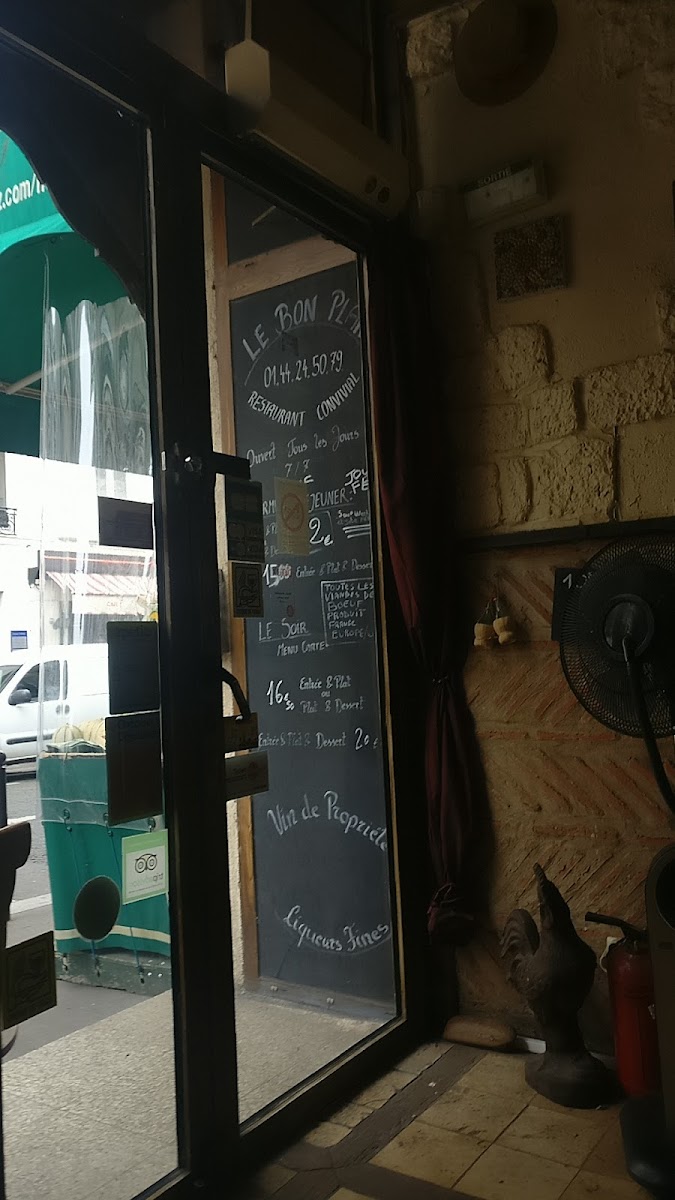 z.com/
SORTIE
LE BON PLA
01.44.24.50.79
RESTAURANT CONVIVIAL
Ouvert Tous les Jours
7/7
JEUNER
2€
15 Entrée & Plat & Dessert
TOUTES LES
VIANDES DE
BOEUF
PRODUIT
FRANCE
EUROPE/
LE SOIR
MENU CARTE
16€50 Entrée & Plat
ou
Plat & Dessert
Entrée & Plat & Dessert 20€
Vin de Propriété
Liqueurs Fines